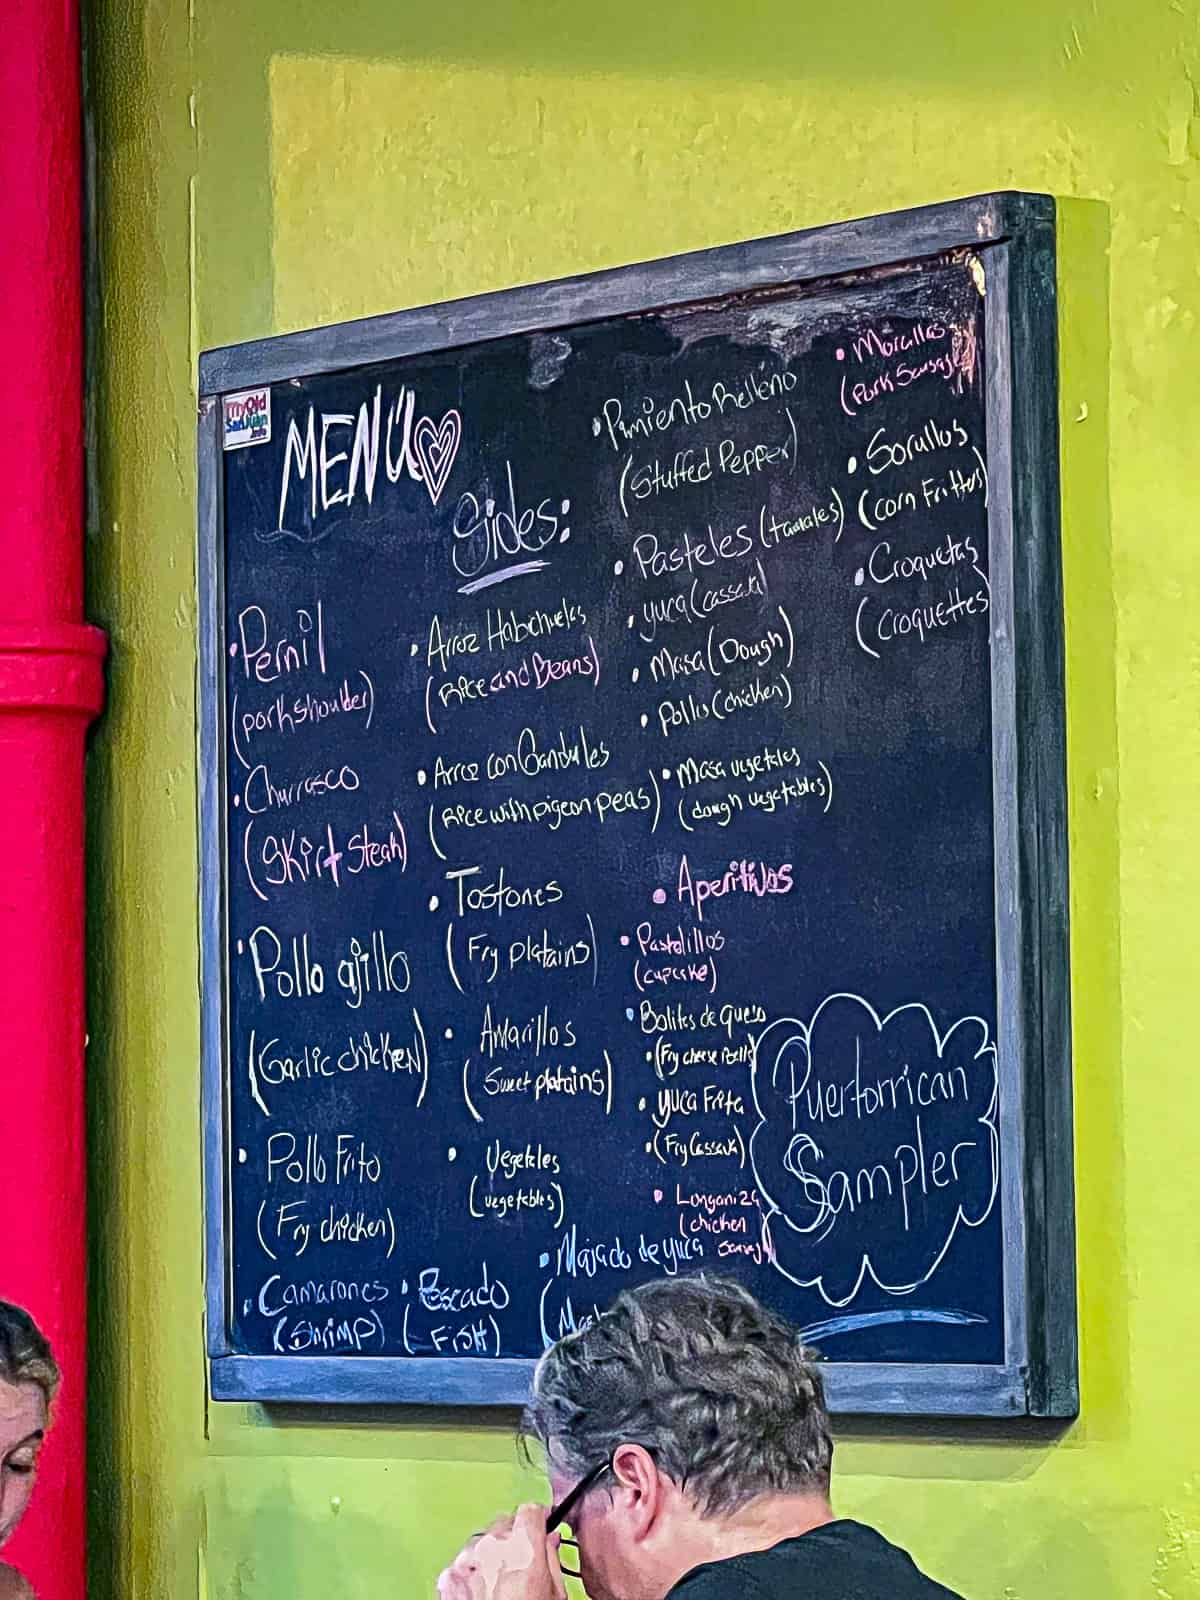 My Old
San Juan
MENU
• Pernil
(pork shoulder)
• Churrasco
(Skirt Steak)
• Pollo ajillo
(Garlic chicken)
• Pollo Frito
(Fry chicken)
• Camarones
(Shrimp)
• Pescado
(Fish)
Sides:
• Arroz Habichuelas
(Rice and Beans)
• Arroz con Gandules
(Rice with pigeon peas)
• Tostones
(Fry platains)
• Amarillos
(Sweet platains)
• Vegetales
(vegetables)
• Majado de yuca
• Pimiento Relleno
(Stuffed Pepper)
• Pasteles (tamales)
• yuca (cassava)
• Masa (Dough)
• Pollo (chicken)
• Masa vegetales
(dough vegetables)
• Aperitivos
• Pastelillos
(cupcake)
• Bolitas de queso
• (Fry cheese Balls)
• yuca Frita
• (Fry Cassava)
• Longaniza
(chicken
Sausage)
• Morcillas
(Pork Sausage
• Sorullos
(corn Fritters)
• Croquetas
(Croquettes)
Puertorrican
Sampler